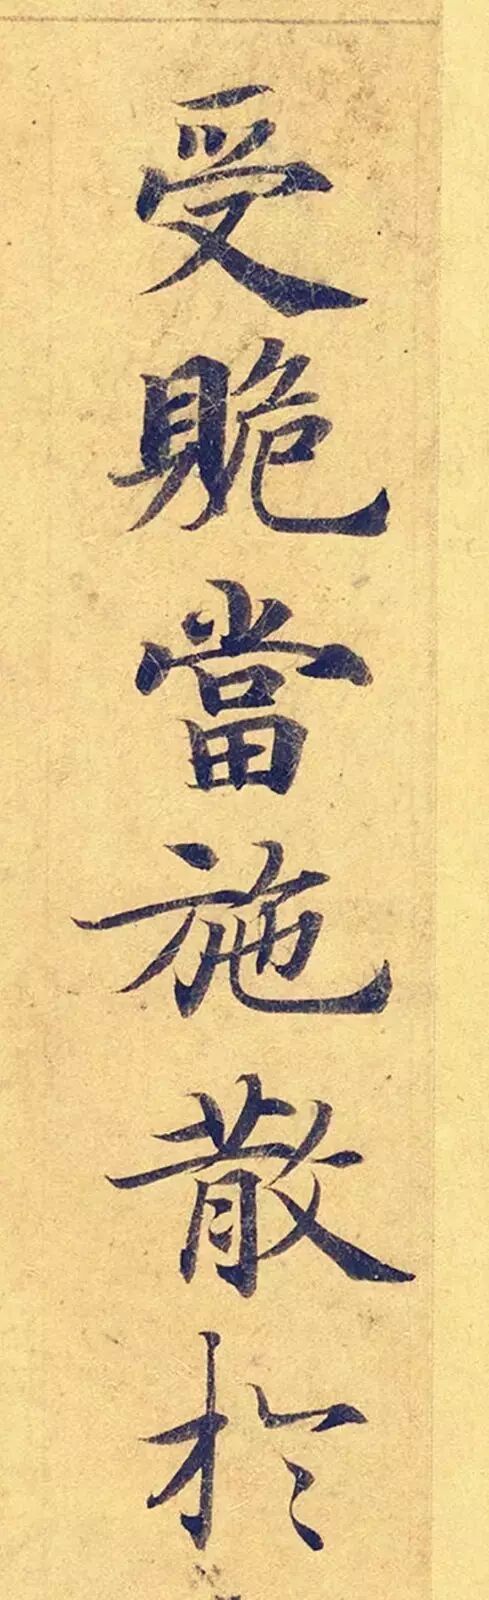 受貺當施散於